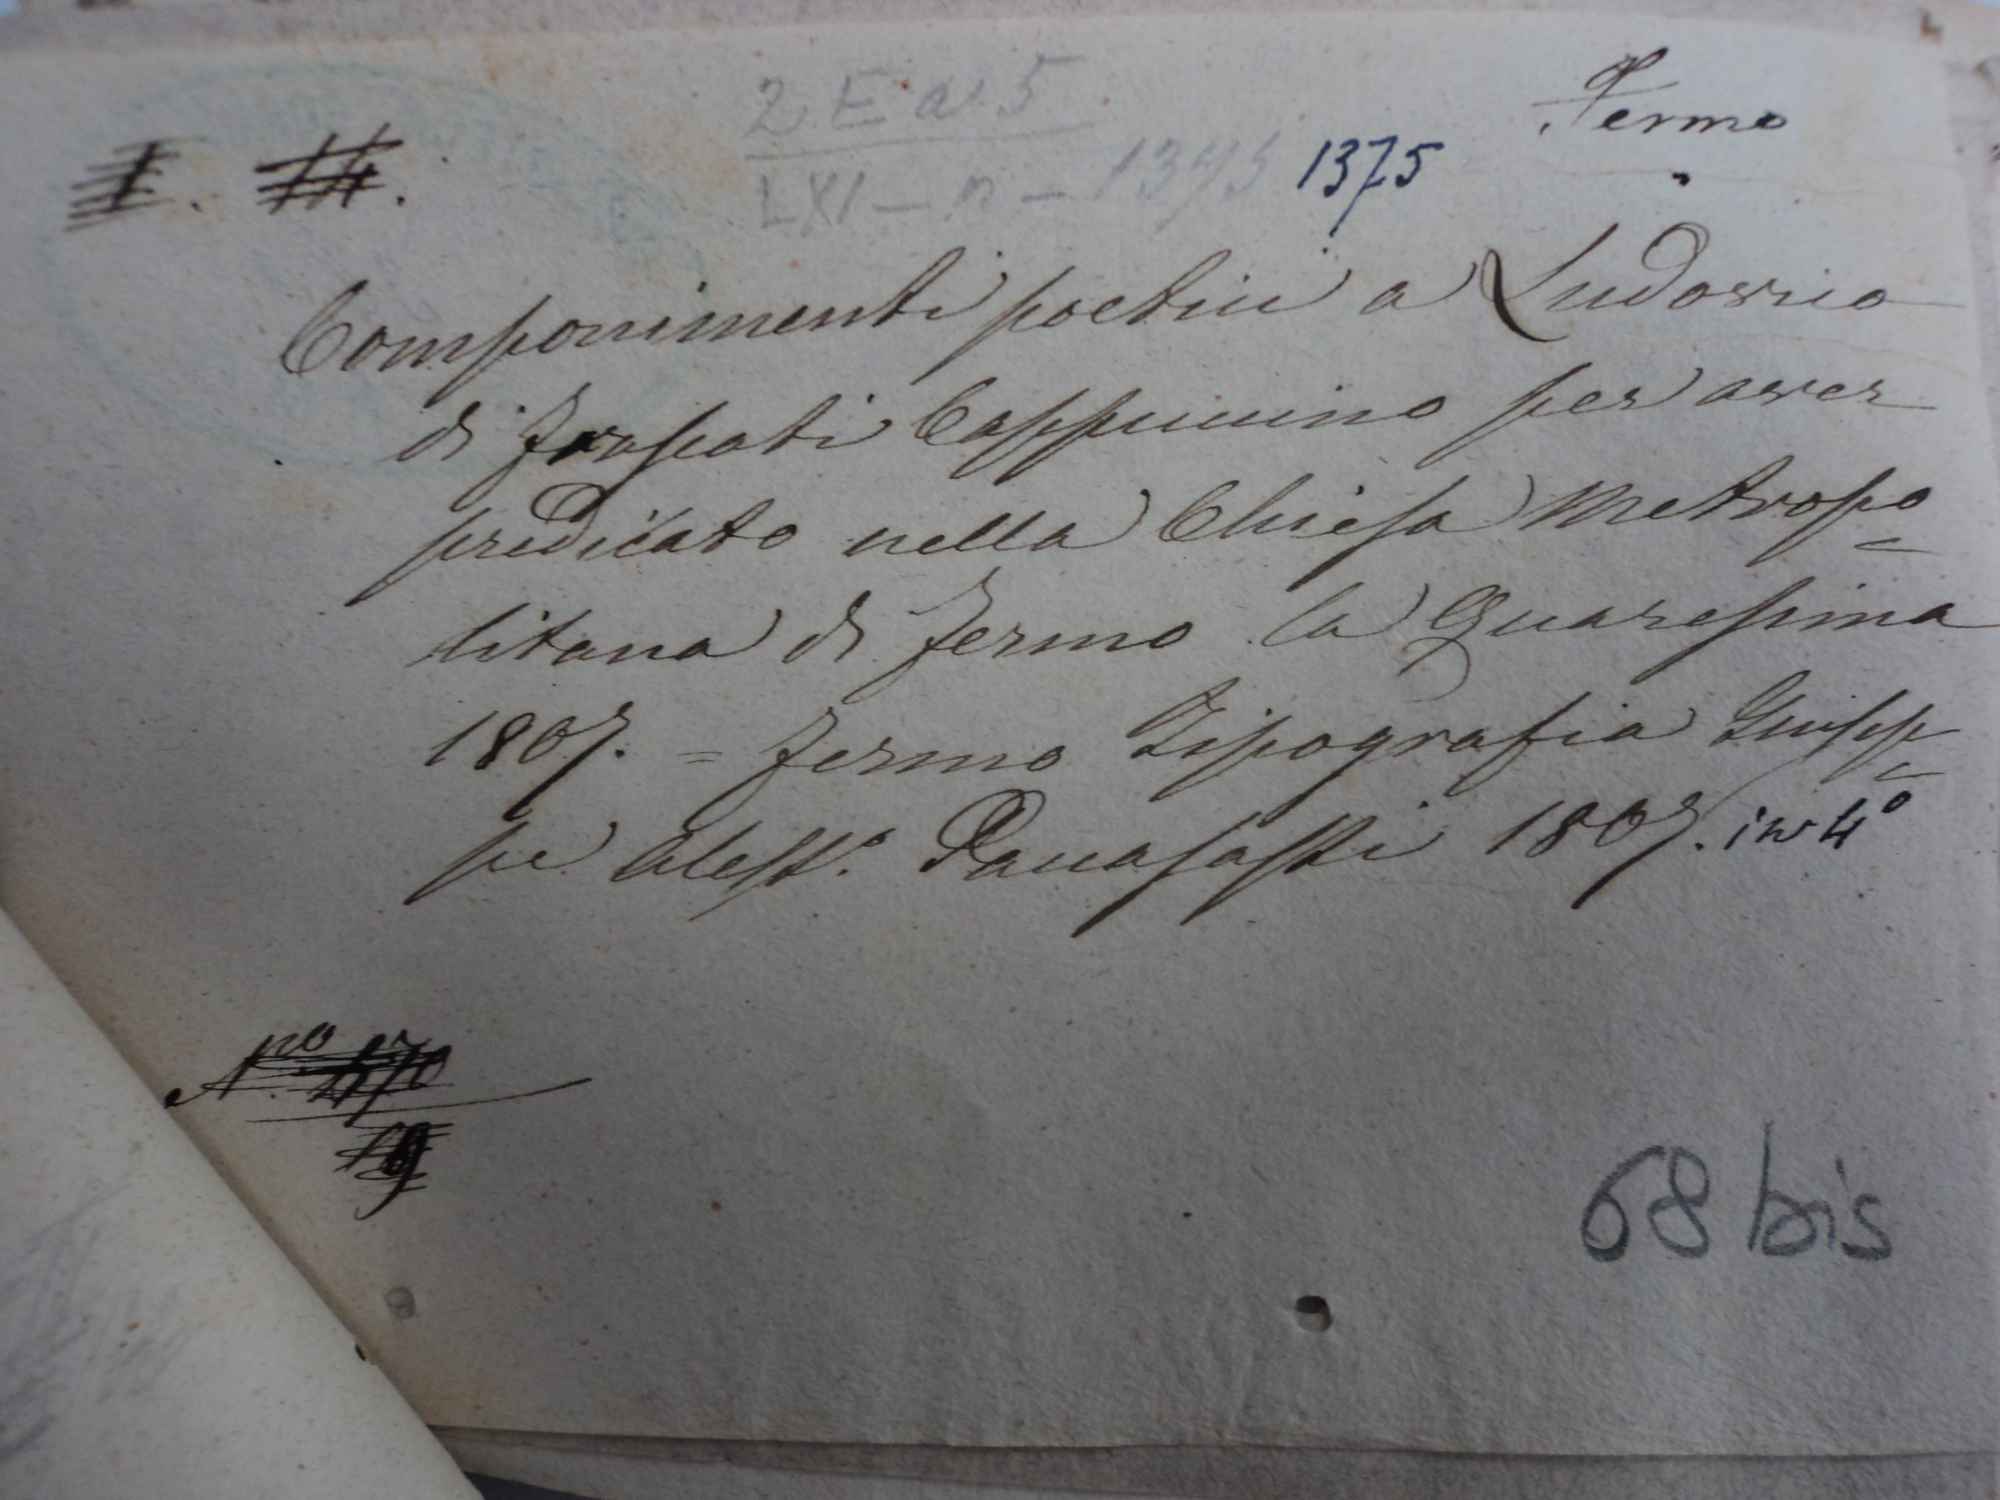 2 E a 5
Fermo
I. 14.
LXI - n - 1375 1375
Componimenti poetici a Ludovico
di Frascati Cappuccino per aver
predicato nella Chiesa Metropo=
litana di Fermo la Quaresima
1807. = Fermo Tipografia Giusep=
pe Aless.o Paccasassi 1807. in 4°
No.
68 bis